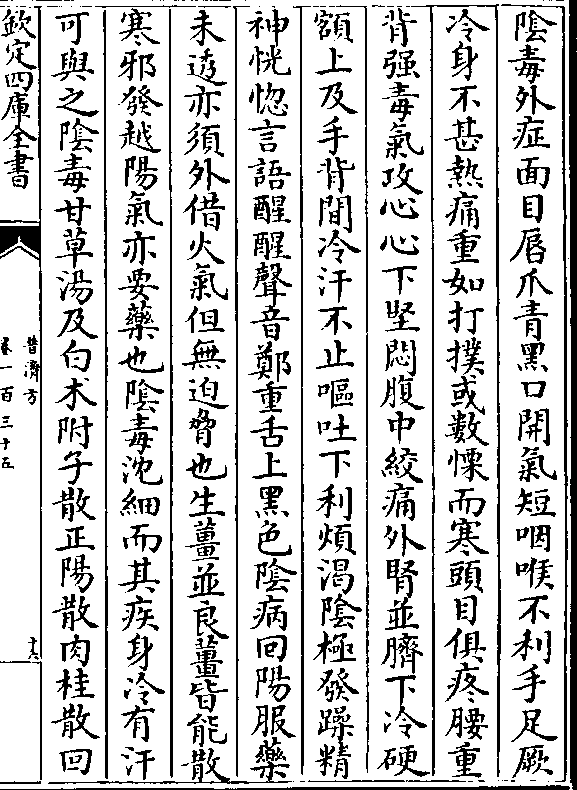 陰毒外症面目唇爪青黑口開氣短咽喉不利手足厥
冷身不甚熱痛重如打撲或數慄而寒頭目俱疼腰重
背强毒氣攻心心下堅悶腹中絞痛外腎並臍下冷硬
額上及手背間冷汗不止嘔吐下利煩渴陰極發躁精
神恍惚言語醒醒聲音鄭重舌上黑色陰病回陽服藥
未透亦須外借火氣但無迫脅也生薑並良薑皆能散
寒邪發越陽氣亦要藥也陰毒沈細而其疾身冷有汗
可與之陰毒甘草湯及白术附子散正陽散肉桂散回
欽定四庫全書
普濟方
卷一百三十五
十六